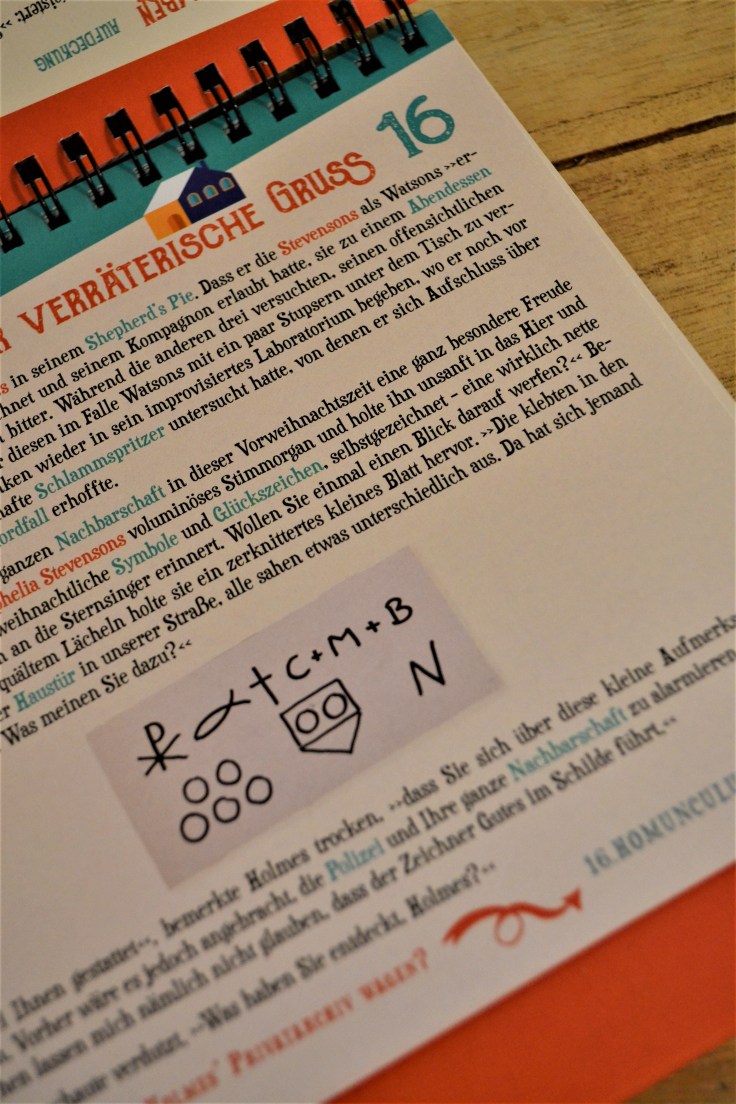 AUFDECKUNG
16
VERRÄTERISCHE GRUSS
in seinem Shepherd's Pie. Dass er die Stevensons als Watsons »er-
hnet und seinem Kompagnon erlaubt hatte, sie zu einem Abendessen
bitter. Während die anderen drei versuchten, seinen offensichtlichen
diesen im Falle Watsons mit ein paar Stupsern unter dem Tisch zu ver-
ken wieder in sein improvisiertes Laboratorium begeben, wo er noch vor
hafte Schlammspritzer untersucht hatte, von denen er sich Aufschluss über
ordfall erhoffte.
ganzen Nachbarschaft in dieser Vorweihnachtszeit eine ganz besondere Freude
helia Stevensons voluminöses Stimmorgan und holte ihn unsanft in das Hier und
weihnachtliche Symbole und Glückszeichen, selbstgezeichnet – eine wirklich nette
an die Sternsinger erinnert. Wollen Sie einmal einen Blick darauf werfen?« Be-
quältem Lächeln holte sie ein zerknittertes kleines Blatt hervor. »Die klebten in den
er Haustür in unserer Straße, alle sahen etwas unterschiedlich aus. Da hat sich jemand
Was meinen Sie dazu?«
C+M+B
N
Ihnen gestattet«, bemerkte Holmes trocken, »dass Sie sich über diese kleine Aufmerks
. Vorher wäre es jedoch angebracht, die Polizei und Ihre ganze Nachbarschaft zu alarmieren
hen lassen mich nämlich nicht glauben, dass der Zeichner Gutes im Schilde führt.«
schaute verdutzt. »Was haben Sie entdeckt, Holmes?«
Holmes' Privatarchiv wagen?
16.HOMUNCULU